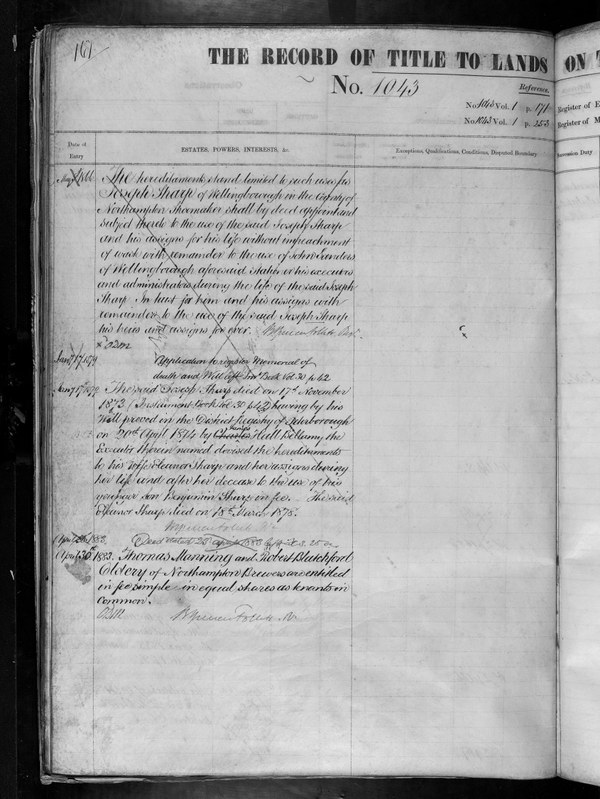 161
THE RECORD OF TITLE TO LANDS ON T
No. 1043
Reference.
No. 1043 Vol. 1 p. 171 Register of E
No. 1043 Vol. 1 p. 253 Register of M
Date of
Entry
ESTATES, POWERS, INTERESTS, &c.
Exceptions, Qualifications, Conditions, Disputed Boundary
Succession Duty
The hereditaments stand limited to such uses as
Joseph Sharp of Wellingborough in the County of
Northampton Shoemaker shall by deed appoint and
subject thereto to the use of the said Joseph Sharp
and his assigns for his life without impeachment
of waste with remainder to the use of John Sanders
of Wellingborough aforesaid his executors
and administrators during the life of the said Joseph
Sharp In trust for him and his assigns with
remainder to the use of the said Joseph Sharp
his heirs and assigns for ever.
Jany 17 1879 Application to register Memorial of
death and Will Book Vol 30 p 42
Jany 17 1879 The said Joseph Sharp died on 17th November
1873 (Instrument Book Vol 30 p 42) having by his
Will proved in the District Registry of Peterborough
on April 1874 by Charles Hall Bellamy the
Executor therein named devised the hereditaments
to his Wife Eleanor Sharp and her assigns during
her life and after her decease to the use of his
younger son Benjamin Sharp in fee. The said
Eleanor Sharp died on 18th March 1878.
April 1883. Deed dated 28 April 1883
April 30th 1883. Thomas Manning and Robert Blatchford
of Northampton Brewers are entitled
in fee simple in equal shares as tenants in
common.